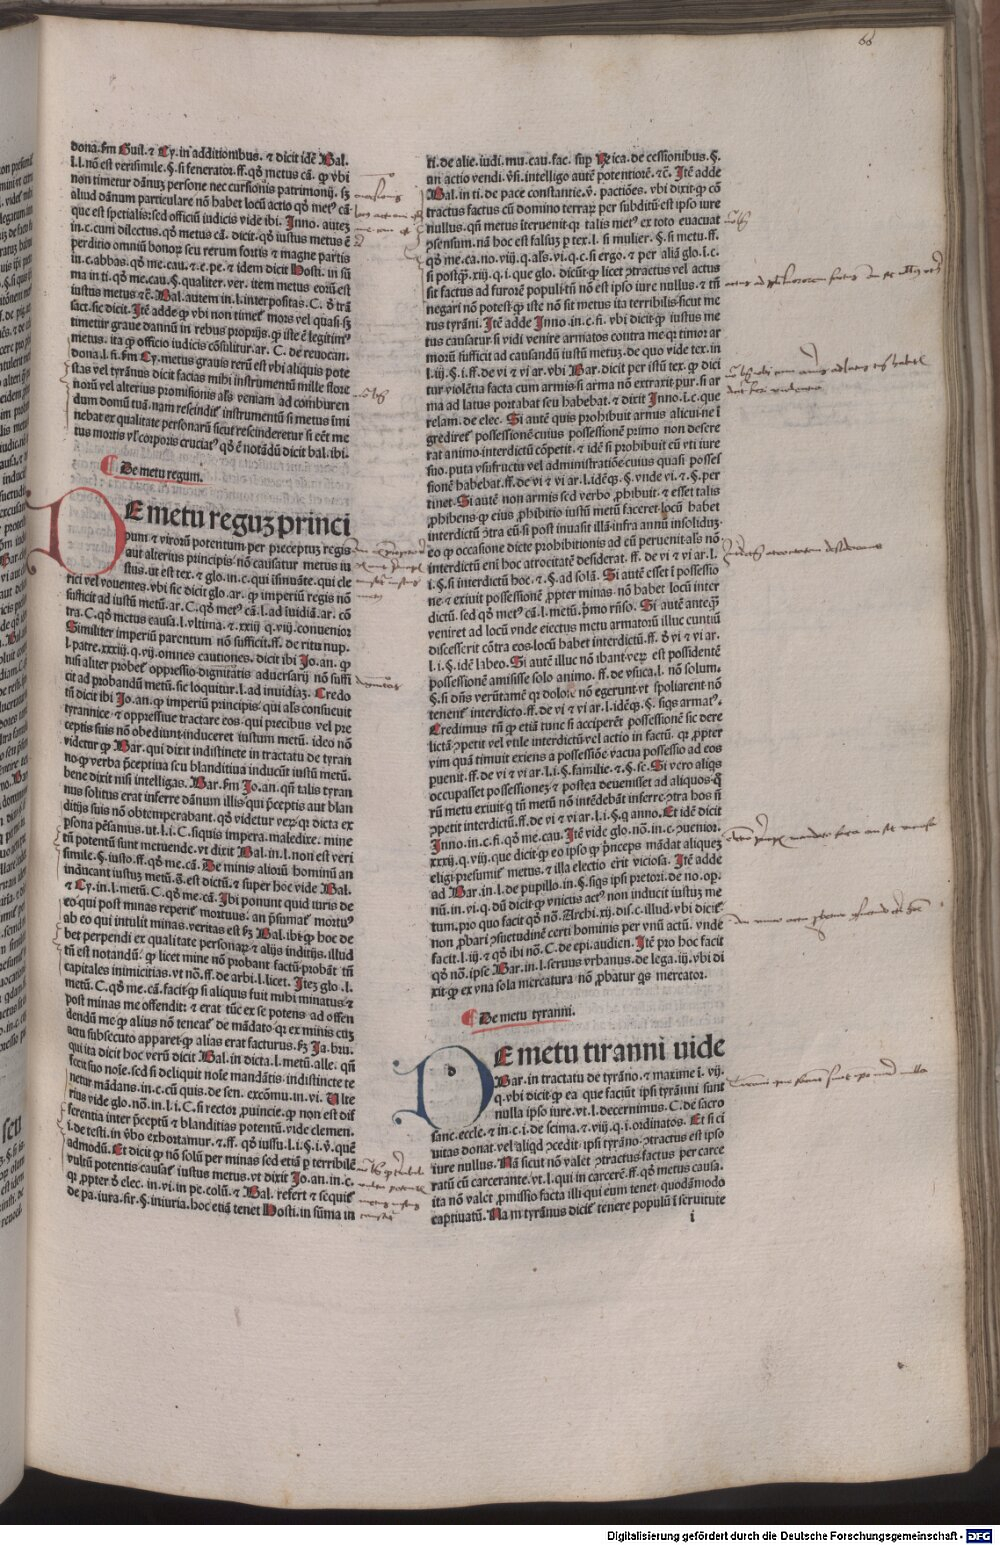 66
dona. s̃m Guil. ⁊ Cy. in additionibus. ⁊ dicit idẽ Bal.
l. l. nõ est verisimile. §. si fenerator. ff. qđ metus cã. ꝙ vbi
non timetur dãnuʒ persone nec cursionis patrimonij. sʒ
aliud dãnum particulare nõ habet locũ actio qđ met⁹ cã
que est specialis: sed officiũ iudicis vide ibi. Inno. auteʒ
in. c. cum dilectus. qđ metus cã. dicit. qđ iustus metus ẽ
perditio omniũ bonoꝝ seu rerum fortis ⁊ magne partis
in. c. abbas. qđ me. cau. ⁊ e. pe. ⁊ idem dicit Hosti. in sũ
ma in ti. qđ me. cau. §. qualiter. ver. item metus eoiũ est
iustus metus ⁊c̃. Bal. autem in. l. interpositas. C. đ trã
sact. sic dicit. Itẽ adde ꝙ vbi non timet᷒ mors vel quasi sʒ
timetur graue dannũ in rebus proprijs. ꝙ iste ẽ legitim⁹
metus. ita ꝙ officio iudicis cõsulitur. ar. C. de reuocan.
dona. l. fi. s̃m Cy. metus grauis rerũ est vbi aliquis pote
stas vel tyrãnus dicit facias mihi instrumentũ mille flore
norũ vel alterius promisionis als veniam ad comburen
dum domũ tuã. nam rescindit᷒ instrumentũ si metus imi
nebat ex qualitate personarũ sicut rescinderetur si eẽt me
tus mortis vl᷒ corporis cruciat⁹ qđ ẽ notãdũ dicit bal. ibi.
¶ De metu regum.
DE metu reguʒ princi
pum ⁊ virorũ potentum per preceptuʒ regis
aut alterius principis nõ causatur metus iu
stus. ut est tex. ⁊ glo. in. c. qui isinuãte. qui cle
rici vel vouentes. vbi sic dicit glo. ar. ꝙ imperiũ regis nõ
sufficit ad iustũ metũ. ar. C. qđ met⁹ cã. l. ad iuidiã. ar. cõ
tra. C. qđ metus causa. l. vltima. ⁊. xxiij. q. vij. conuenior
Similiter imperiũ parentum nõ sufficit. ff. de ritu nup.
l. patre. xxxiij. q. vij. omnes cautiones. dicit ibi Jo. an. ꝙ
nisi aliter probet᷒ oppressio dignitatis aduersarij nõ suffi
cit ad probandũ metũ. sic loquitur. l. ad inuidiaʒ. Credo
tñ dicit ibi Jo. an. ꝙ imperiũ principis qui als consueuit
tyrannice ⁊ oppressiue tractare eos. qui precibus vel pre
ceptis suis nõ obediunt induceret iustum metũ. ideo nõ
videtur ꝙ Bar. qui dixit indistincte in tractatu de tyran
no ꝙ verba p̃ceptiua seu blanditiua inducũt iustũ metũ.
bene dixit nisi intelligas. Bar. s̃m Jo. an. qñ talis tyran
nus solitus erat inferre dãnum illis qui p̃ceptis aut blan
ditijs suis nõ obtemperabant. qđ videtur verꝝ ꝙ dicta ex
p̃sona pẽsamus. ut. l. i. C. si quis impera. maledixe. mine
tñ potentũ sunt metuende. vt dixit Bal. in. l. non est veri
simile. §. iusto. ff. qđ me. cã. De minis aliorũ bominũ an
inducant iustuʒ metũ. ð. est dictũ. ⁊ super hoc vide Bal.
⁊ Cy. in. l. metũ. C. qđ me. cã. Ibi ponunt quid iuris de
eo qui post minas reperit᷒ mortuus. an p̃sumat᷒ mortu⁹
ab eo qui intulit minas. veritas est sʒ Bal. ibi ꝙ hoc de
bet perpendi ex qualitate personaꝝ ⁊ alijs inditijs. illud
tñ est notandũ. ꝙ licet mine nõ probant factũ. probãt tñ
capitales inimicitias. vt nõ. ff. de arbi. l. licet. Iteʒ glo. l.
metũ. C. qđ me. cã. facit ꝙ si aliquis fuit mihi minatus ⁊
post minas me offendit: ⁊ erat tũc ex se potens ad offen
dendũ me ꝙ alius nõ teneat᷒ de mãdato. ꝙ ex minis cuʒ
actu subsecuto apparet ꝙ alias erat facturus. sʒ Ja. bru.
qui ita dicit hoc verũ dicit Bal. in dicta. l. metũ. alle. qñ
fecit suo nole. sed si deliquit nole mandãtis. indistincte te
netur mãdans. in. c. cũ quis. de sen. excõmu. in. vi. Ulte
rius vide glo. nõ. in. l. i. C. si rector ꝓuincie. ꝙ non est dif
ferentia inter p̃ceptũ ⁊ blanditias potentũ. vide clemen.
i. de testi. in ṽbo exhortamur. ⁊ ff. qđ iussu. l. i. §. i. ṽ. quẽ
admodũ. Et dicit ꝙ nõ solũ per minas sed etiã ꝑ terribilẽ
vultũ potentis causat᷒ iustus metus. vt dixit Jo. an. in. c.
qi ꝓpter đ elec. in. vi. in pe. colũ. ⁊ Bal. refert ⁊ sequit᷒
de pa. iura. fir. §. iniuria. hoc etiã tenet Hosti. in sũma in
ti. de alie. iudi. mu. cau. fac. sup Rica. de cessionibus. §.
an actio vendi. ṽsi. intelligo autẽ potentiorẽ. ⁊c̃. Itẽ adde
Bal. in ti. de pace constantie. ṽ. pactiões. vbi dixit ꝙ cõ
tractus factus cũ domino terraꝝ per subditũ est ipso iure
nullus. qñ metus iteruenit ꝙ talis met⁹ ex toto euacuat
ↄsensum. nã hoc est falsuʒ ꝑ tex. l. si mulier. §. si metu. ff.
qđ me. ca. no. viij. q. als. vi. q. c. si ergo. ⁊ per aliã glo. l. c.
si postq̃. xij. q. i. que glo. dicũt ꝙ licet ↄtractus vel actus
sit factus ad furorẽ populi tñ nõ est ipso iure nullus. ⁊ tñ
negari nõ potest ꝙ iste nõ sit metus ita terribilis sicut me
tus tyrãni. Itẽ adde Inno. in. c. fi. vbi dicit ꝙ iustus me
tus causatur si vidi venire armatos contra me ꝙ timor ar
morũ sufficit ad causandũ iustũ metuʒ. de quo vide tex. in
l. iij. §. i. ff. de vi ⁊ vi ar. vbi Bar. dicit per istũ tex. ꝙ dici
tur violẽtia facta cum armis si arma nõ extraxit pur. si ar
ma ad latus portabat seu habebat. ⁊ dixit Inno. i. c. que
relam. de elec. Si autẽ quis prohibuit armis alicui ne i
grediret᷒ possessionẽ cuius possessionẽ primo non desere
rat animo interdictũ cõpetit. ⁊ idẽ si prohibuit eũ vti iure
suo. puta vsufructu vel administratiõe cuius quasi posses
sionẽ habebat. ff. de vi ⁊ vi ar. l. idẽqʒ. §. vnde vi. ⁊. §. per
tinet. Si autẽ non armis sed verbo ꝓhibuit. ⁊ esset talis
ꝓhibens ꝙ eius ꝓhibitio iustũ metũ faceret locũ habet
interdictũ ↄtra eũ si post inuasit illã. infra annũ insolidʒ.
eo ꝙ occasione dicte prohibitionis ad eũ peruenit als nõ
interdictũ eni hoc atrocitatẽ desiderat. ff. de vi ⁊ vi ar. l.
i. §. si interdictũ hoc. ⁊. §. ad solã. Si autẽ esset i possessio
ne ⁊ exiuit possessionẽ ꝓpter minas nõ habet locũ inter
dictũ. sed qđ met⁹ cã. l. metũ. p̃mo rñso. Si autẽ anteqʒ
veniret ad locũ vnde eiectus metu armatorũ illuc cuntiũ
discesserit cõtra eos locũ habet interdictũ. ff. đ vi ⁊ vi ar.
l. i. §. idẽ labeo. Si autẽ illuc nõ ibant verꝝ est possidentẽ
possessionẽ amisisse solo animo. ff. de vsuca. l. nõ solum.
§. si dñs verũtamẽ qꝫ dolo. ⁊ nõ egerunt vt spoliarent nõ
tenent᷒ interdicto. ff. de vi ⁊ vi ar. l. idẽqʒ. §. siqs armat⁹.
Credimus tñ ꝙ etiã tunc si acciperẽt possessionẽ sic dere
lictã ↄpetit vel vtile interdictũ vel actio in factũ. qꝫ ꝓpter
vim quã timuit exiens a possessiõe vacua possessio ad eos
puenit. ff. de vi ⁊ vi ar. l. i. §. familie. ⁊. §. sc. Si vero aliqs
occupasset possessioneʒ ⁊ postea deuenisset ad aliquos ꝗ
rũ metu exiuit ꝗ tñ metũ nõ intẽdebãt inferre ↄtra hos si
ↄpetit interdictũ. ff. de vi ⁊ vi ar. l. i. §. ꝗ anno. Et idẽ dicit
Inno. in. c. fi. qđ me. cau. Itẽ vide glo. nõ. in. c. ↄuenior.
xxxij. q. vij. que dicit ꝙ eo ipso ꝙ p̃nceps mãdat aliqueʒ
eligi. presumit᷒ metus. ⁊ illa electio erit viciosa. Itẽ adde
ad Bar. in. l. de pupillo. in. §. siqs ipsi pretori. de no. op.
nũ. in. vi. q. dũ dicit ꝙ vnicus act⁹ non inducit iustuʒ me
tum. pro quo facit qđ nõ. Archi. xij. dis. c. illud. vbi dicit᷒
non ꝓbari ↄsuetudinẽ certi hominis per vnũ actũ. vnde
facit. l. iij. ⁊ qđ ibi nõ. C. de epi. audien. Itẽ pro hoc facit
qđ nõ. ipse Bar. in. l. seruus vrbanus. de lega. iij. vbi di
xit ꝙ ex vna sola mercatura nõ ꝓbatur qs mercator.
¶ De metu tyranni.
DE metu tiranni uide
Bar. in tractatu de tyrãno. ⁊ maxime i. vij.
q. vbi dicit ꝙ ea que faciũt ipsi tyrãnni sunt
nulla ipso iure. vt. l. decernimus. C. de sacro
sanc. eccle. ⁊ in. c. i. de scisma. ⁊ viij. q. i. ordinatos. Et si ci
uitas donat vel aliqđ ↄcedit ipsi tyrãno ↄtractus est ipso
iure nullus. Nã sicut nõ valet ↄtractus factus per carce
ratũ cũ carcerante. vt. l. qui in carcerẽ. ff. qđ metus causa.
ita nõ valet ꝓmissio facta illi qui eum tenet quodãmodo
captiuatũ. Nam tyrãnus dicit᷒ tenere populũ i seruitute
i
Digitalisierung gefördert durch die Deutsche Forschungsgemeinschaft - DFG